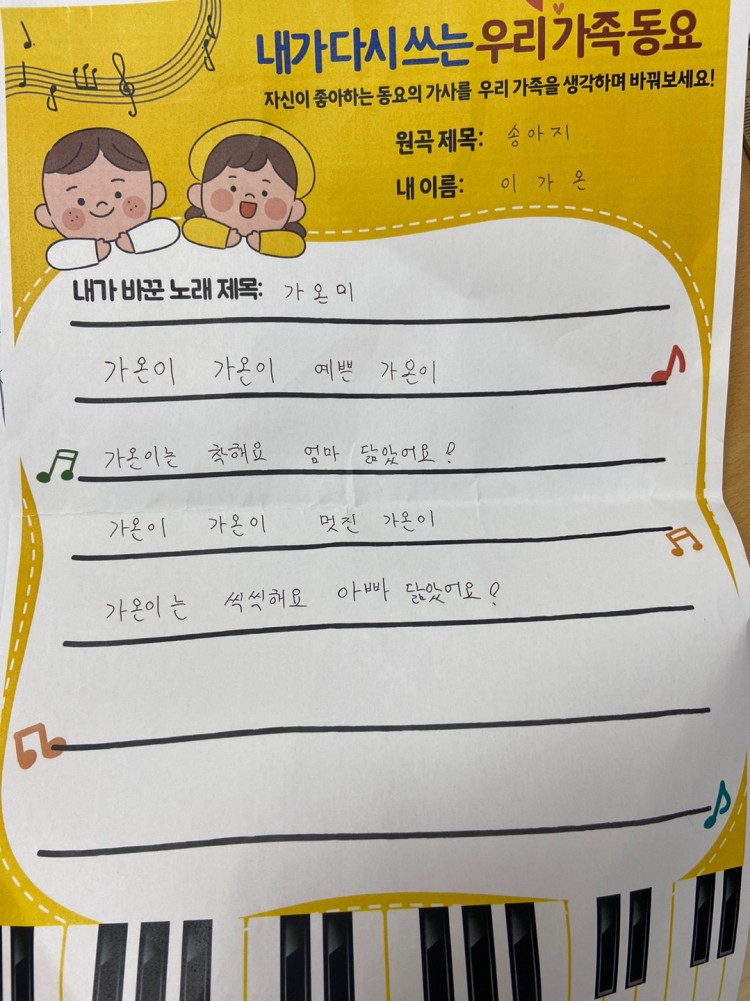 내가 다시 쓰는 우리 가족 동요
자신이 좋아하는 동요의 가사를 우리 가족을 생각하며 바꿔보세요!
원곡 제목: 송아지
내 이름: 이가온
내가 바꾼 노래 제목: 가온미
가온이 가온이 예쁜 가온이
가온이는 착해요 엄마 닮았어요?
가온이 가온이 멋진 가온이
가온이는 씩씩해요 아빠 닮았어요?